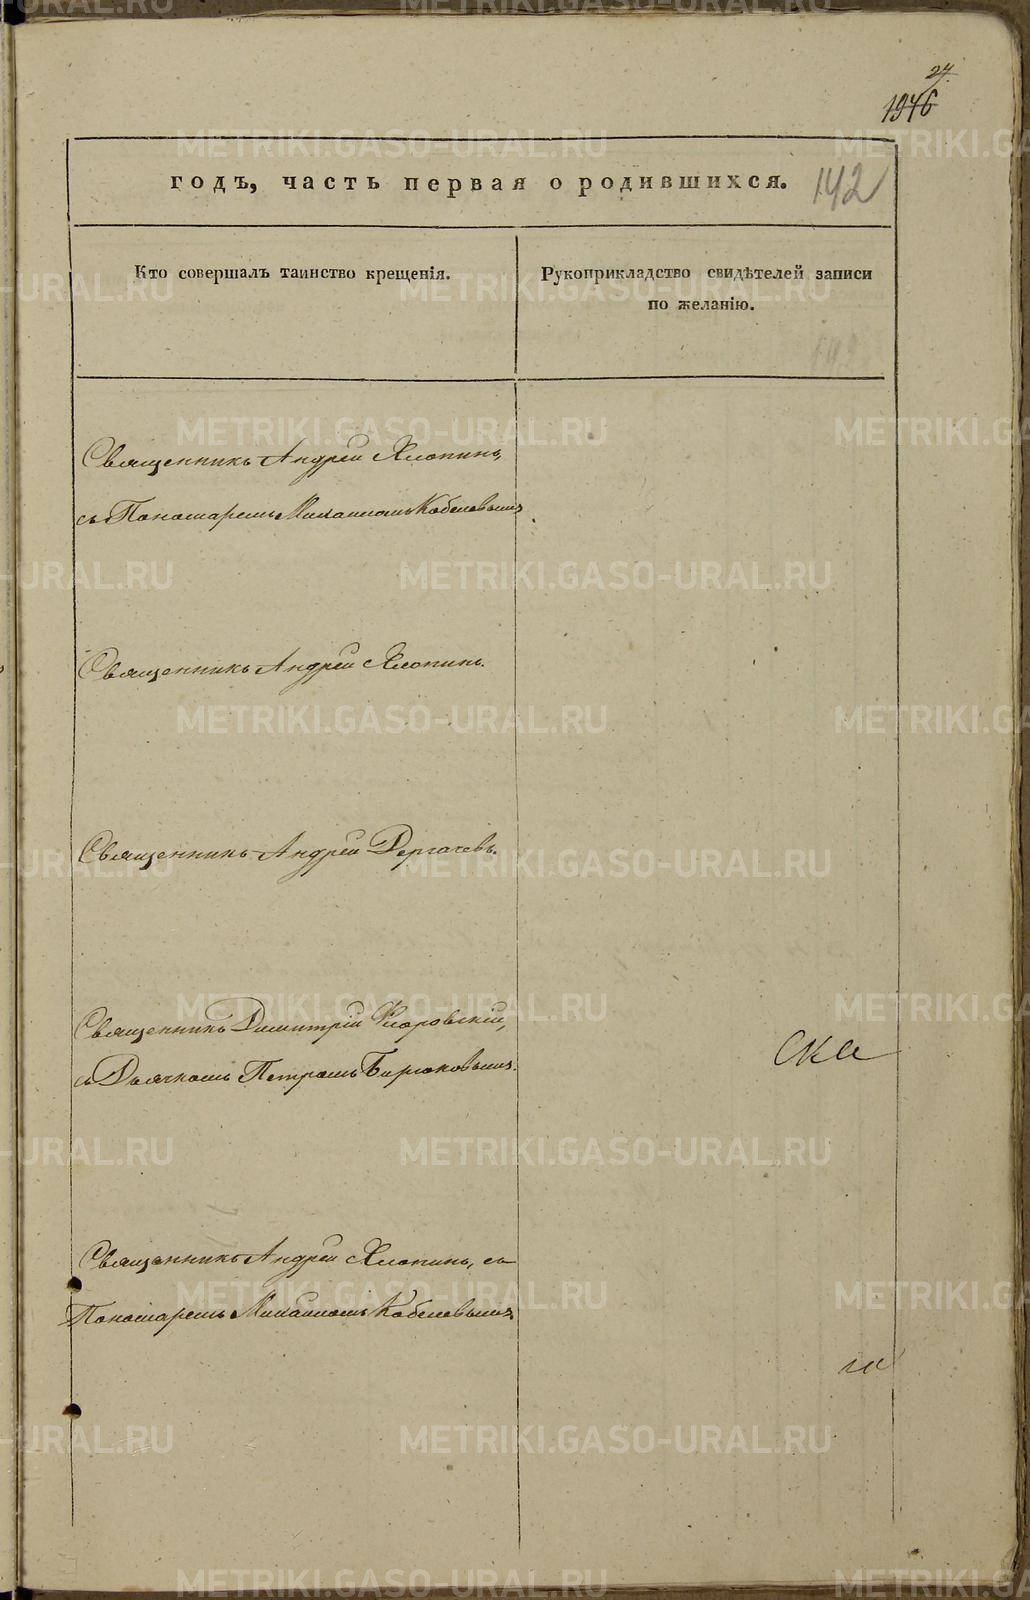 24.
1946
годъ, часть первая о родившихся. 142
Кто совершалъ таинство крещенія.
Рукоприкладство свидѣтелей записи
по желанію.
Священникъ Андрей Хлопинъ,
съ Пономаремъ Михаиломъ Кобелевымъ.
Священникъ Андрей Хлопинъ.
Священникъ Андрей Дергачевъ.
Священникъ Димитрій Флоровскій,
съ Дьячкомъ Петромъ Бирюковымъ.
ска
Священникъ Андрей Хлопинъ, съ
Пономаремъ Михаиломъ Кобелевымъ.
METRIKI.GASO-URAL.RU